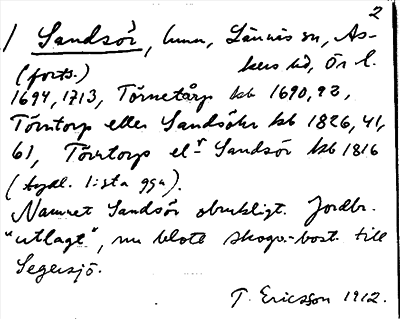 2
/ Sandsör, hmn, Lännäs sn, As-
(forts.) kers hd, Ör l.
1694, 1713, Törnetårp kb 1690, 92,
Törntorp eller Sandsöhr kb 1826, 41,
61, Törntorps elr Sandsör kb 1816
(tydl. lista gga).
Namnet Sandsör obrukligt. Jordbr.
"utlagt", nu blott skogv.-bost. till
Segersjö.
T. Ericsson 1912.